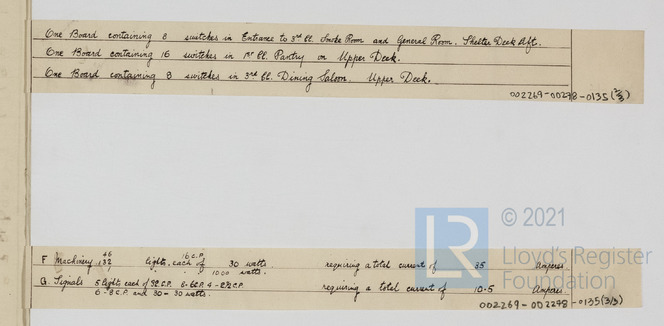 One Board containing 8 switches in Entrance to 3rd Cl. Smoke Room and General Room. Shelter Deck Aft.
One Board containing 16 switches in 1st Cl. Pantry on Upper Deck.
One Board containing 8 switches in 3rd Cl. Dining Saloon. Upper Deck.
002269-002278-0135(2/3)
LR
© 2021
Lloyd's Register
Foundation
46 16 C.P.
F Machinery 132 lights, each of 30 watts requiring a total current of 35 Amperes
1 " " " 1000 watts.
G. Signals 5 lights each of 32 C.P. 6-6 C.P. 4-2½ C.P. requiring a total current of 10.5 Amperes.
6-8 C.P. and 30-30 watts.
002269-002278-0135(3/3)